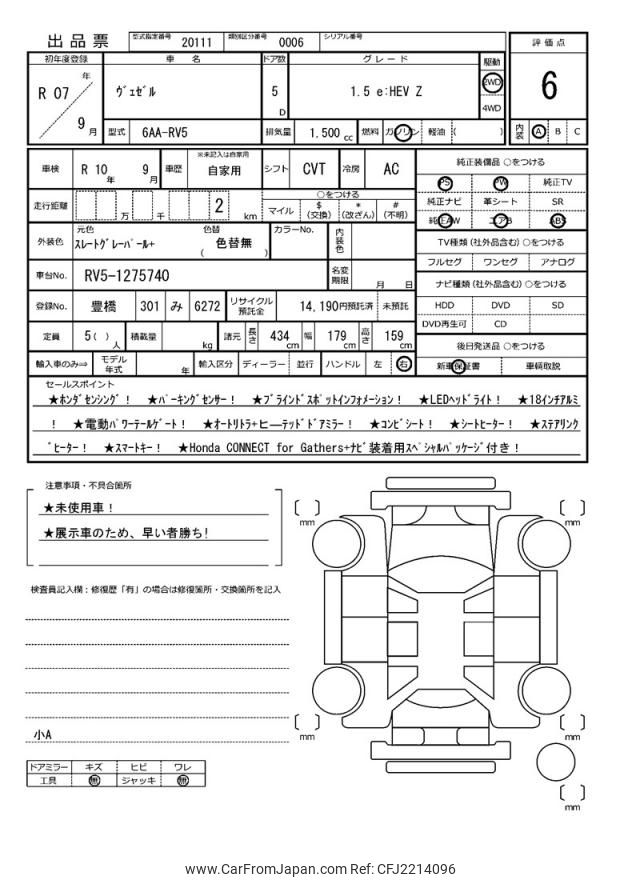 出品票
型式指定番号 20111 類別区分番号 0006 シリアル番号
評価点
6
内装 A B C
初年度登録 車名 ドア数 グレード 駆動
R 07 年 9 月
ヴェゼル 5 D 1.5 e:HEV Z 2WD 4WD
型式 6AA-RV5 排気量 1.500 cc 燃料 ガソリン 軽油 ( )
車検 R 10 年 9 月 車歴 ※未記入は自家用 自家用 シフト CVT 冷房 AC
走行距離 万 千 2 km
○をつける
マイル $ (交換) * (改ざん) # (不明)
外装色 元色 スレートグレーパール+ 色替 ( 色替無 ) カラーNo. 内装色
車台No. RV5-1275740 名変期限 月 日
登録No. 豊橋 301 み 6272 リサイクル預託金 14,190円預託済 未預託
定員 5( ) 人 積載量 kg 諸元 長さ 434 cm 幅 179 cm 高さ 159 cm
輸入車のみ⇒ モデル年式 年 輸入区分 ディーラー 並行 ハンドル 左 右
純正装備品 ○をつける
PS PW 純正TV
純正ナビ 革シート SR
純正AW エアB ABS
TV種類 (社外品含む) ○をつける
フルセグ ワンセグ アナログ
ナビ種類 (社外品含む) ○をつける
HDD DVD SD
DVD再生可 CD
後日発送品 ○をつける
新車保証書 車輌取説
セールスポイント
★ホンダセンシング! ★パーキングセンサー! ★ブラインドスポットインフォメーション! ★LEDヘッドライト! ★18インチアルミ
! ★電動パワーテールゲート! ★オートリトラ+ヒーテッドドアミラー! ★コンビシート! ★シートヒーター! ★ステアリング
ヒーター! ★スマートキー! ★Honda CONNECT for Gathers+ナビ装着用スペシャルパッケージ付き!
注意事項・不具合箇所
★未使用車!
★展示車のため、早い者勝ち!
検査員記入欄:修復歴「有」の場合は修復箇所・交換箇所を記入
小A
ドアミラー キズ ヒビ ワレ
工具 無 ジャッキ 無
mm
mm
mm
mm
mm
www.CarFromJapan.com Ref: CFJ2214096